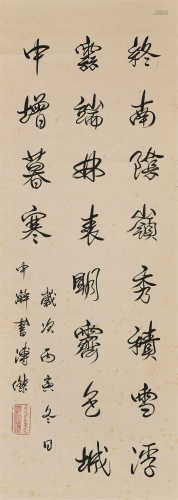 終南陰嶺秀積雪浮
雲端林表明霽色城
中增暮寒
歲次丙寅冬日
書溥傑